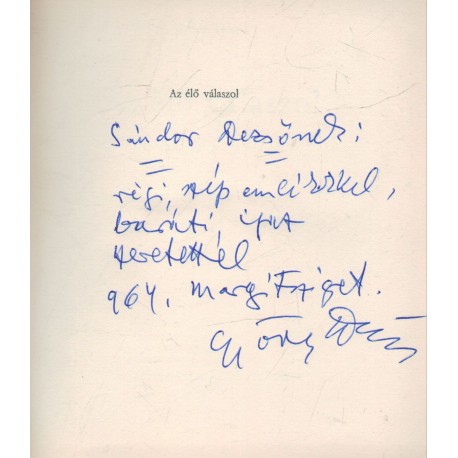 Az élő válaszol
Sándor Dezsőnek:
régi, szép emlékekkel,
baráti, igaz
szeretettel
964, Margitsziget.
György